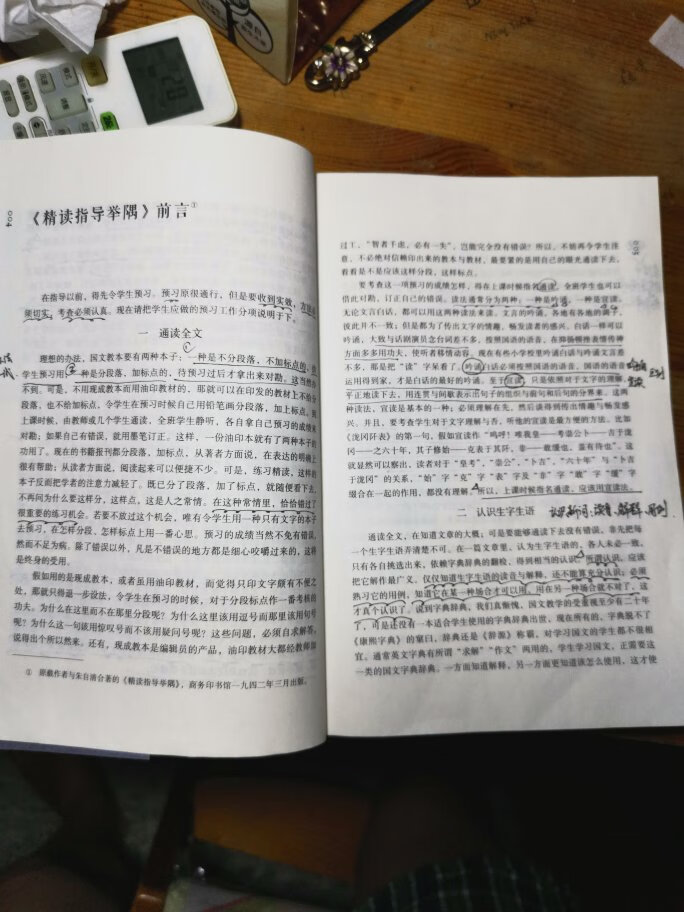 004
《精读指导举隅》前言①
在指导以前，得先令学生预习。预习原很通行，但是要收到实效，
须切实，考查必认真。现在请把学生应做的预习工作分项说明于下。
一 通读全文
理想的办法，国文教本要有两种本子：一种是不分段落，不加标点的，供
学生预习用；一种是分段落，加标点的，待预习过后才拿出来对勘。这当然办
不到。可是，不用现成教本而用油印教材的，那就可以在印发的教材上不给分
段落，也不给加标点，令学生在预习时候自己用铅笔画分段落，加上标点。到
上课时候，由教师或几个学生通读，全班学生静听，各自拿自己预习的成绩来
对勘；如果自己有错误，就用墨笔订正。这样，一份油印本就有了两种本子的
功用了。现在的书籍报刊都分段落，加标点，从著者方面说，在表达的明确上
很有帮助；从读者方面说，阅读起来可以便捷不少。可是，练习精读，这样的
本子反而把学者的注意力减轻了。既已分了段落，加了标点，就随便看下去，
不再问为什么要这样分，这样点，这是人之常情。在这种常情里，恰恰错过了
很重要的练习机会。若要不放过这个机会，唯有令学生用一种只有文字的本子
去预习，在怎样分段、怎样标点上用一番心思。预习的成绩当然不免有错误，
然而不足为病。除了错误以外，凡是不错误的地方都是细心咬嚼过来的，这将
是终身的受用。
假如用的是现成教本，或者虽用油印教材，而觉得只印文字颇有不便之
处，那就只得退一步设法，令学生在预习的时候，对于分段标点作一番考核的
功夫。为什么在这里而不在那里分段呢？为什么这里该用逗号而那里该用句号
呢？为什么这一句该用惊叹号而不该用疑问号呢？这些问题，必须自求解答，
说得出个所以然来。还有，现成教本是编辑员的产品，油印教材大都经教师加
① 原载作者与朱自清合著的《精读指导举隅》，商务印书馆一九四二年三月出版。
005
过工，“智者千虑，必有一失”，岂能完全没有错误？所以，不妨再令学生注
意，不必绝对信赖印出来的教本与教材，最要紧的是用自己的眼光通读下去，
看看是不是应该这样分段，这样标点。
要考查这一项预习的成绩怎样，得在上课时候指名通读。全班学生也可以
借此对勘，订正自己的错误。读法通常分为两种：一种是吟诵，一种是宣读。
无论文言白话，都可以用这两种读法来读。文言的吟诵，各地有各地的调子，
彼此并不一致；但是都为了传出文字的情趣，畅发读者的感兴。白话一样可以
吟诵，大致与话剧演员念台词差不多，按照国语的语音，在抑扬顿挫表情传神
方面多多用功夫，使听者移情动容。现在有些小学校里吟诵白话与吟诵文言差
不多，那是把“读”字呆看了。吟诵白话必须按照国语的语音，国语的语音
运用得到家，才是白话的最好的吟诵。至于宣读，只是依照对于文字的理解，
平正地读下去，用连贯与间歇表示出句子的组织与前句和后句的分界来。这两
种读法，宣读是基本的一种；必须理解在先，然后谈得到传出情趣与畅发感
兴。并且，要考查学生对于文字理解与否，听他的宣读是最方便的方法。比如
《泷冈阡表》的第一句，假如宣读作“呜呼！唯我皇——考崇公卜——吉于泷
冈——之六十年，其子修始——克表于其阡，非——敢缓也，盖有待也”。这
就显然可以察出，读者对于“皇考”、“崇公”、“卜吉”、“六十年”与“卜吉
于泷冈”的关系，“始”字“克”字“表”字及“非”字“敢”字“缓”字
缀合在一起的作用，都没有理解。所以，上课时候指名通读，应该用宣读法。
二 认识生字生语
通读全文，在知道文章的大概；可是要能够通读下去没有错误，非先把每
一个生字生语弄清楚不可。在一篇文章里，认为生字生语的，各人未必一致，
只有各自挑选出来，依赖字典辞典的翻检，得到相当的认识。所谓认识，应该
把它解作最广义。仅仅知道生字生语的读音与解释，还不能算充分认识；必须
熟习它的用例，知道它在某一种场合才可以用，用在另一种场合就不对了，这
才真个认识了。说到字典辞典，我们真惭愧，国文教学的受重视至少有二十年
了，可是还没有一本适合学生使用的字典辞典出世。现在所有的，字典脱不了
《康熙字典》的窠臼，辞典还是《辞源》称霸，对学习国文的学生都不很相
宜。通常英文字典有所谓“求解”“作文”两用的，学生学习国文，正需要这
一类的国文字典辞典。一方面知道解释，另一方面更知道该怎么使用，这才使